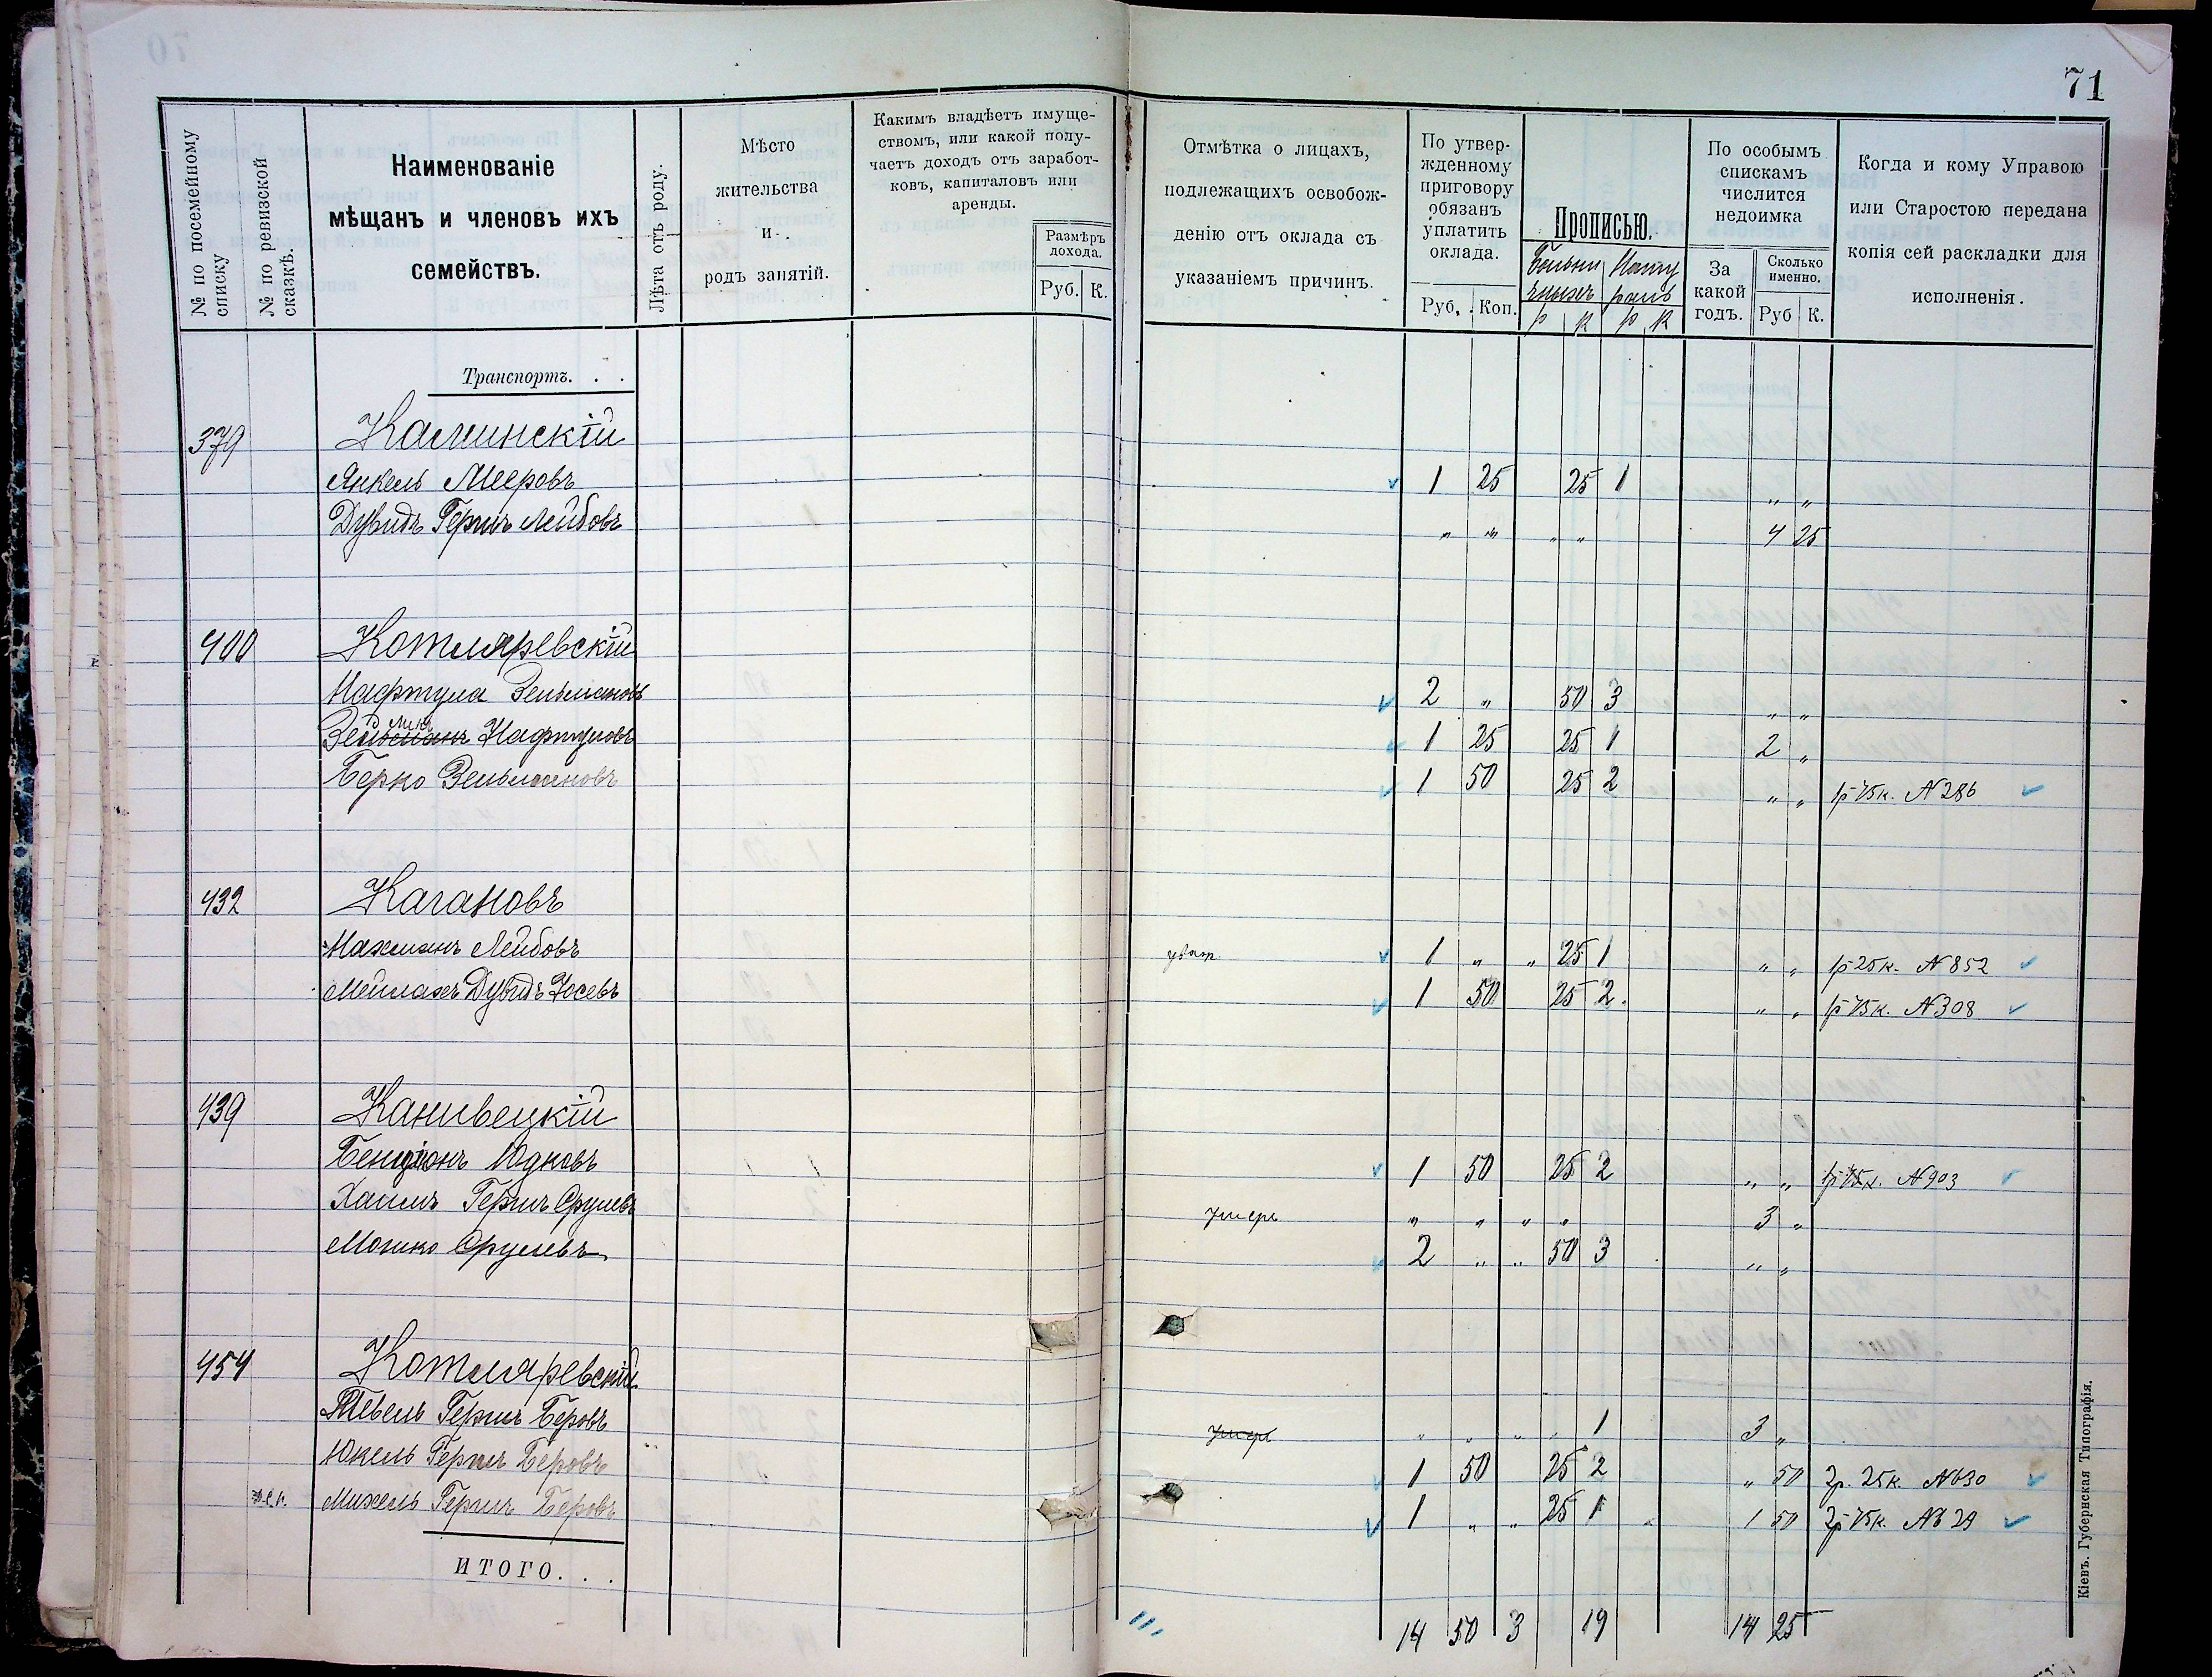 71
№ по посемейному списку
№ по ревизской сказкѣ.
Наименованіе
мѣщанъ и членовъ ихъ
семействъ.
Лѣта отъ роду.
Мѣсто
жительства
и
родъ занятій.
Какимъ владѣетъ имуще-
ствомъ, или какой полу-
чаетъ доходъ отъ заработ-
ковъ, капиталовъ или
аренды.
Размѣръ
дохода.
Руб. К.
Отмѣтка о лицахъ,
подлежащихъ освобож-
денію отъ оклада съ
указаніемъ причинъ.
По утвер-
жденному
приговору
обязанъ
уплатить
оклада.
Руб. Коп.
Прописью.
р к р к
По особымъ
спискамъ
числится
недоимка
За
какой
годъ.
Сколько
именно.
Руб К.
Когда и кому Управою
или Старостою передана
копія сей раскладки для
исполненія.
Транспортъ. . .
379 Каминскій
Янкель Мееровъ 1 25 25 1 „ „
Дувидъ Гершъ Лейбовъ „ „ „ „ 4 25
400 Котляревскій
Нафтула Зельмановъ 2 „ 50 3 „ „
Нафтуловъ 1 25 25 1 2 „
Берко Зельмановъ 1 50 25 2 „ „ 1р 75к. №286
432 Кагановъ
Нахманъ Лейбовъ 1 „ „ 25 1 „ „ 1р 25к. №852
Мейлахъ Дувидъ Іосевъ 1 50 25 2. „ „ 1р 75к. №308
439 Канивецкій
Бенціонъ Юдковъ 1 50 25 2 „ „ 1р 75к. №903
Хаимъ Гершъ Срулевъ Умеръ „ „ „ „ 3 „
Мошко Срулевъ 2 „ „ 50 3 „ „
454 Котляревскій
Тевель Гершъ Беровъ Умеръ „ „ „ „ 1 3 „
Юкель Гершъ Беровъ 1 50 25 2 „ 50 2р. 25к. №630
Михель Гершъ Беровъ 1 „ „ 25 1 1 50 2р 75к. №629
ИТОГО. . .
14 50 3 19 14 25
Кіевъ. Губернская Типографія.